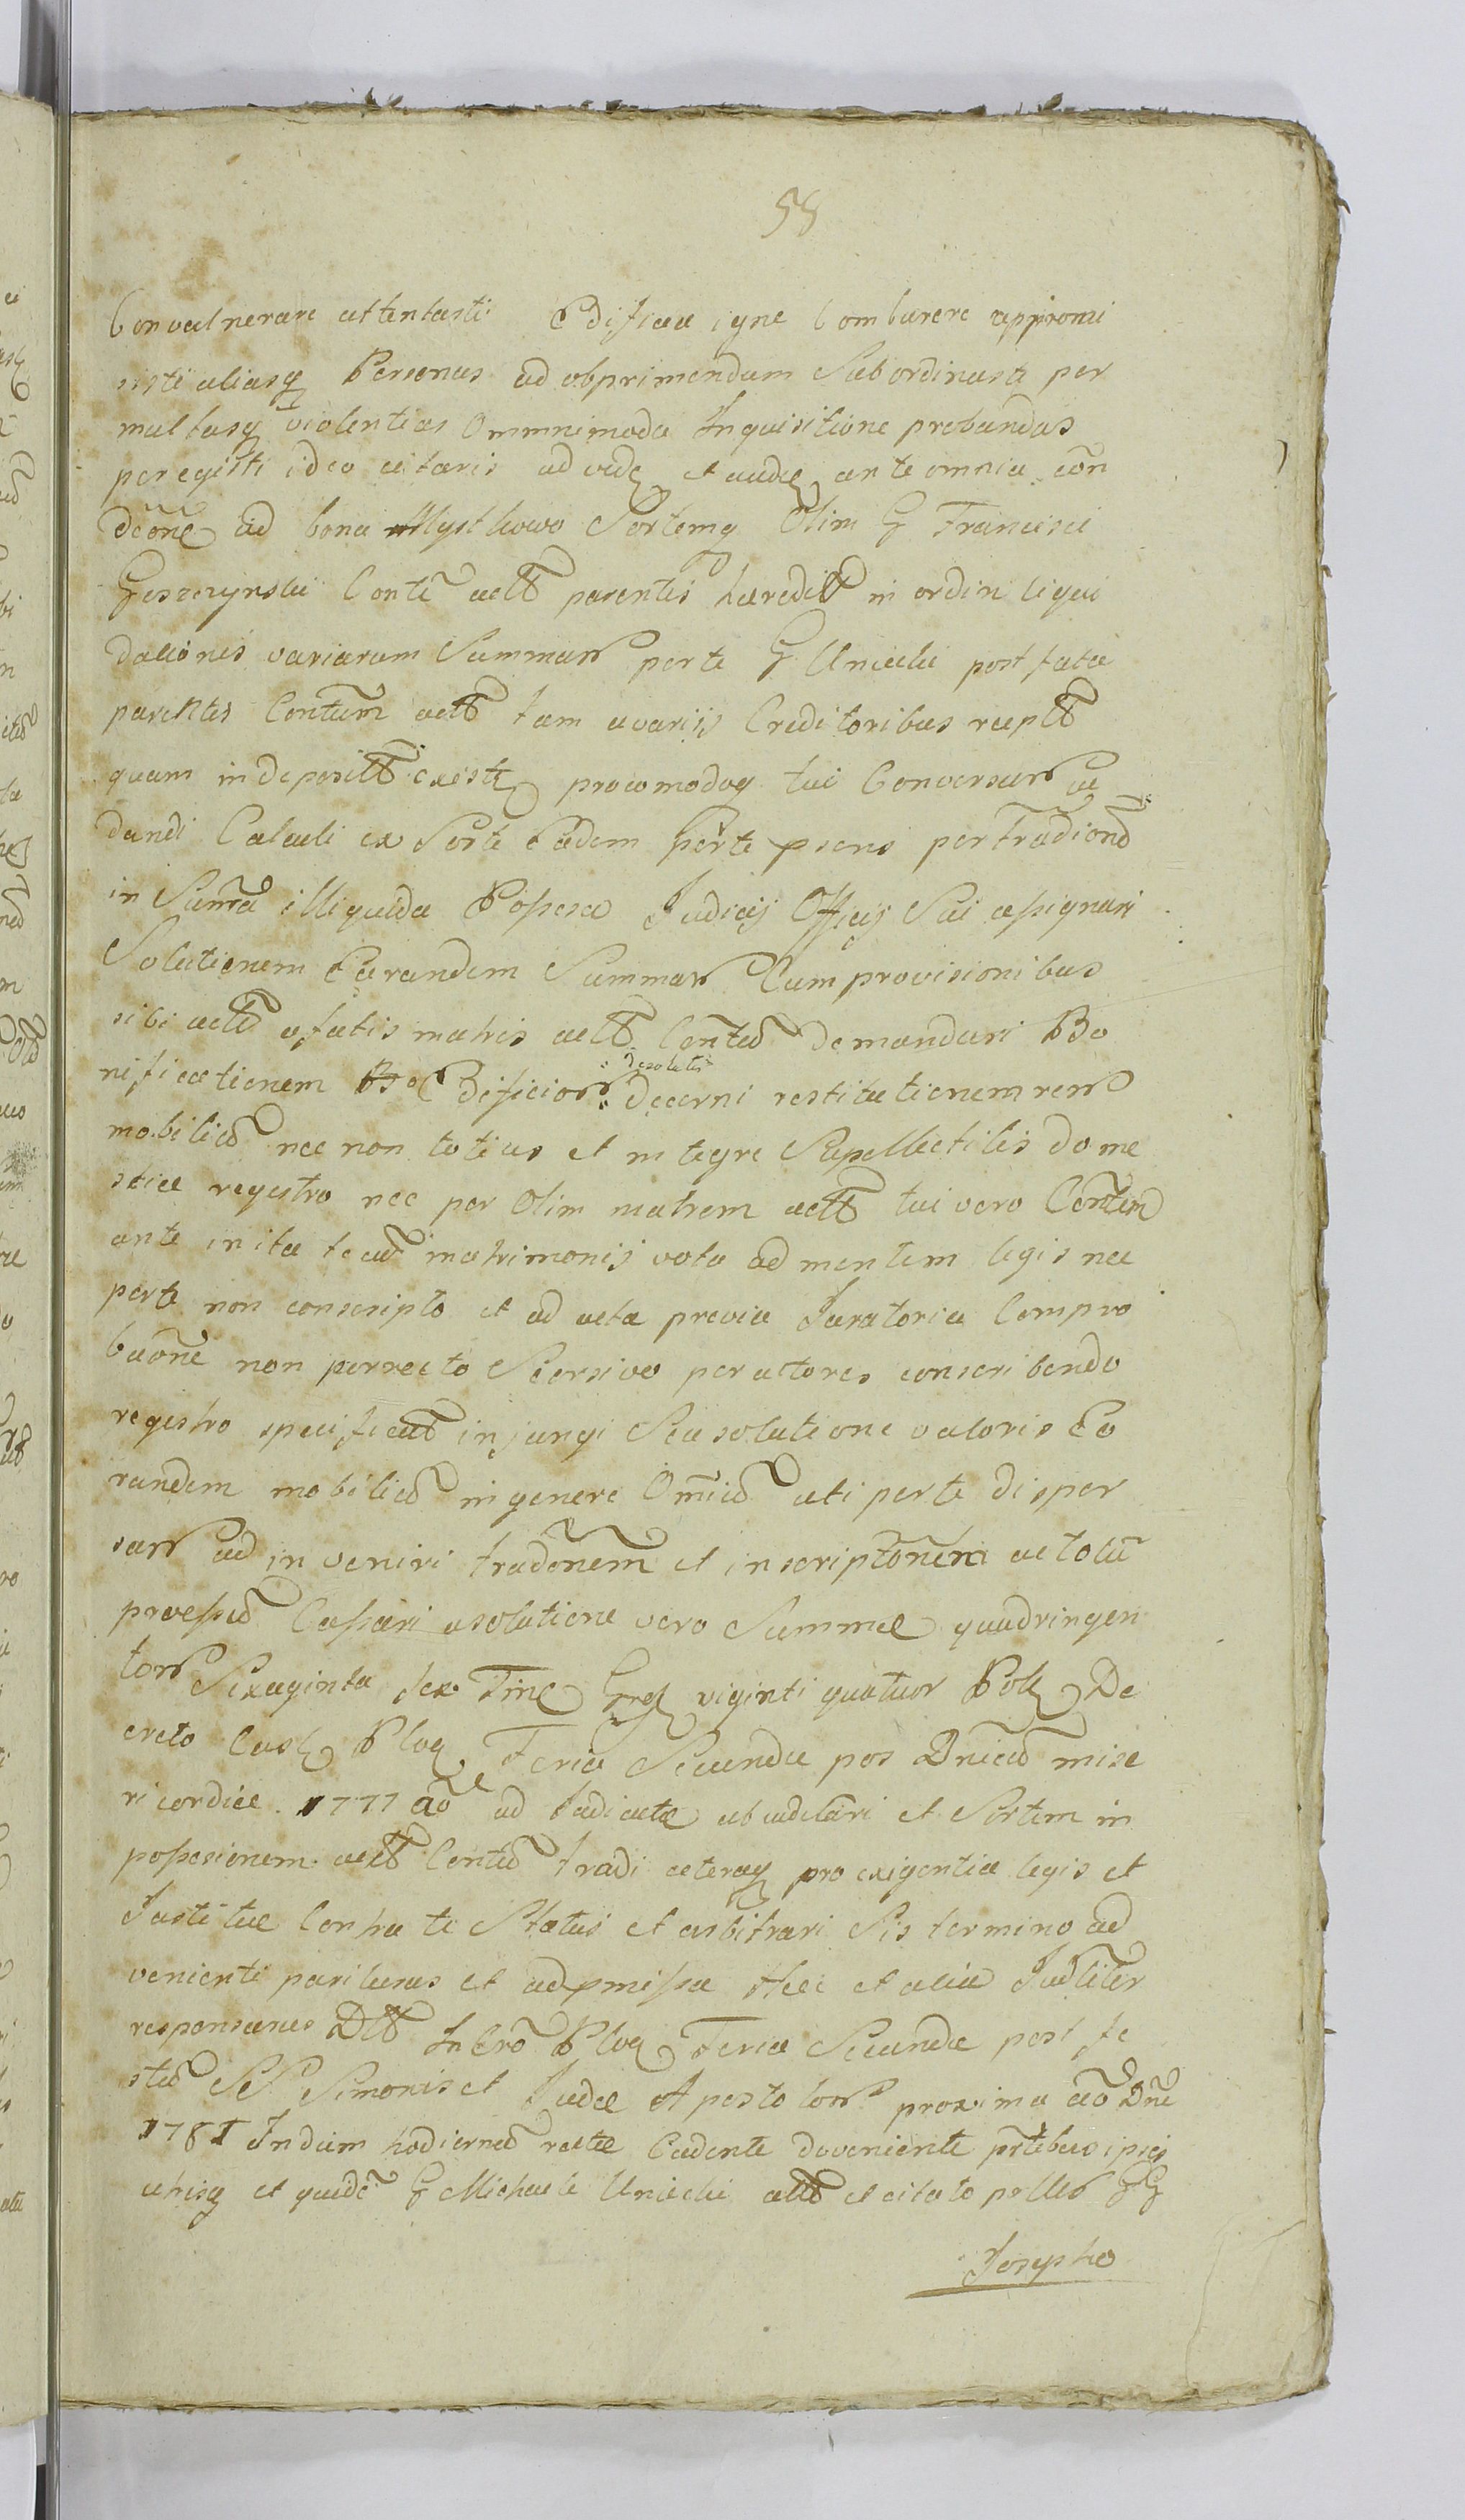 58
Convulnerare attentasti Ædificia igne Comburere appromi
sisti aliasq Personas ad obprimendum Subordinasti per
multasq violentias Ommnimoda Inquisitione probandas
peregisti ideo citaris ad vide et aude ante omnia con
dcone ad bona Mysthowo Sortemq Olim G Francisci
Goszczynski Conte actt parentis hæredit in ordin liqui
dationis variarum Summarr per te G Uniecki post fata
parentes Contum actt tam a varijs Creditoribus recpt
quam in deposit exist pro comodoq tui Conversarr ac
dandi Calculi ex Sorte Eadem per te prens per tradiond
in Summa illiquida Possesa Judicij Officij Sui assignari
Solutionem Earundem Summarr Cum provisionibus
sibi actt a fatis matris actt Contd demandari Bo
nificationem Ædificiorr desolatis Decerni restitutionem rerr
mobiliu nec non totius et integre Supellectilis dome
sticæ registro nec per Olim matrem actt tui vero Contem
ante inita tecu matrimonij vota ad mentem legis nec
per te non conscripto et ad acta prævia Juratoria Compro
baone non porrecto Seorsivo per actores conscribendo
registro specificatt injungi Seu solutione valoris Eo
rundem mobiliu in genere Omiu uti per te disper
sarr ad inveniri tradonem et inscriptonem ac totu
processu Cassari a solutione vero Summæ quadringen
torr Sexaginta sex Tine Gres viginti quatuor Pol De
creto Cast Ploc Feria Secunda pos Dnicu mise
ricordiæ 1777 ao ad Judicata abiudicari et Sortem in
possesionem actt Contd tradi ceteraq pro exigentia legis et
Justitiæ Contra te Statui et arbitrari Sis termino ad
venienti pariturus et ad pmissa Hæc et alia Judliter
responsurus Dtt In Cro Ploc Feria Secunda post fe
stu SS Simonis et Judæ Apostolorr proxima ao Dni
1781 In diem hodiernu recte Cadente doveniente prtibus ipsis
utrisq et quide G Michaele Uniecki att et citato pr Ulb GG
Josepho